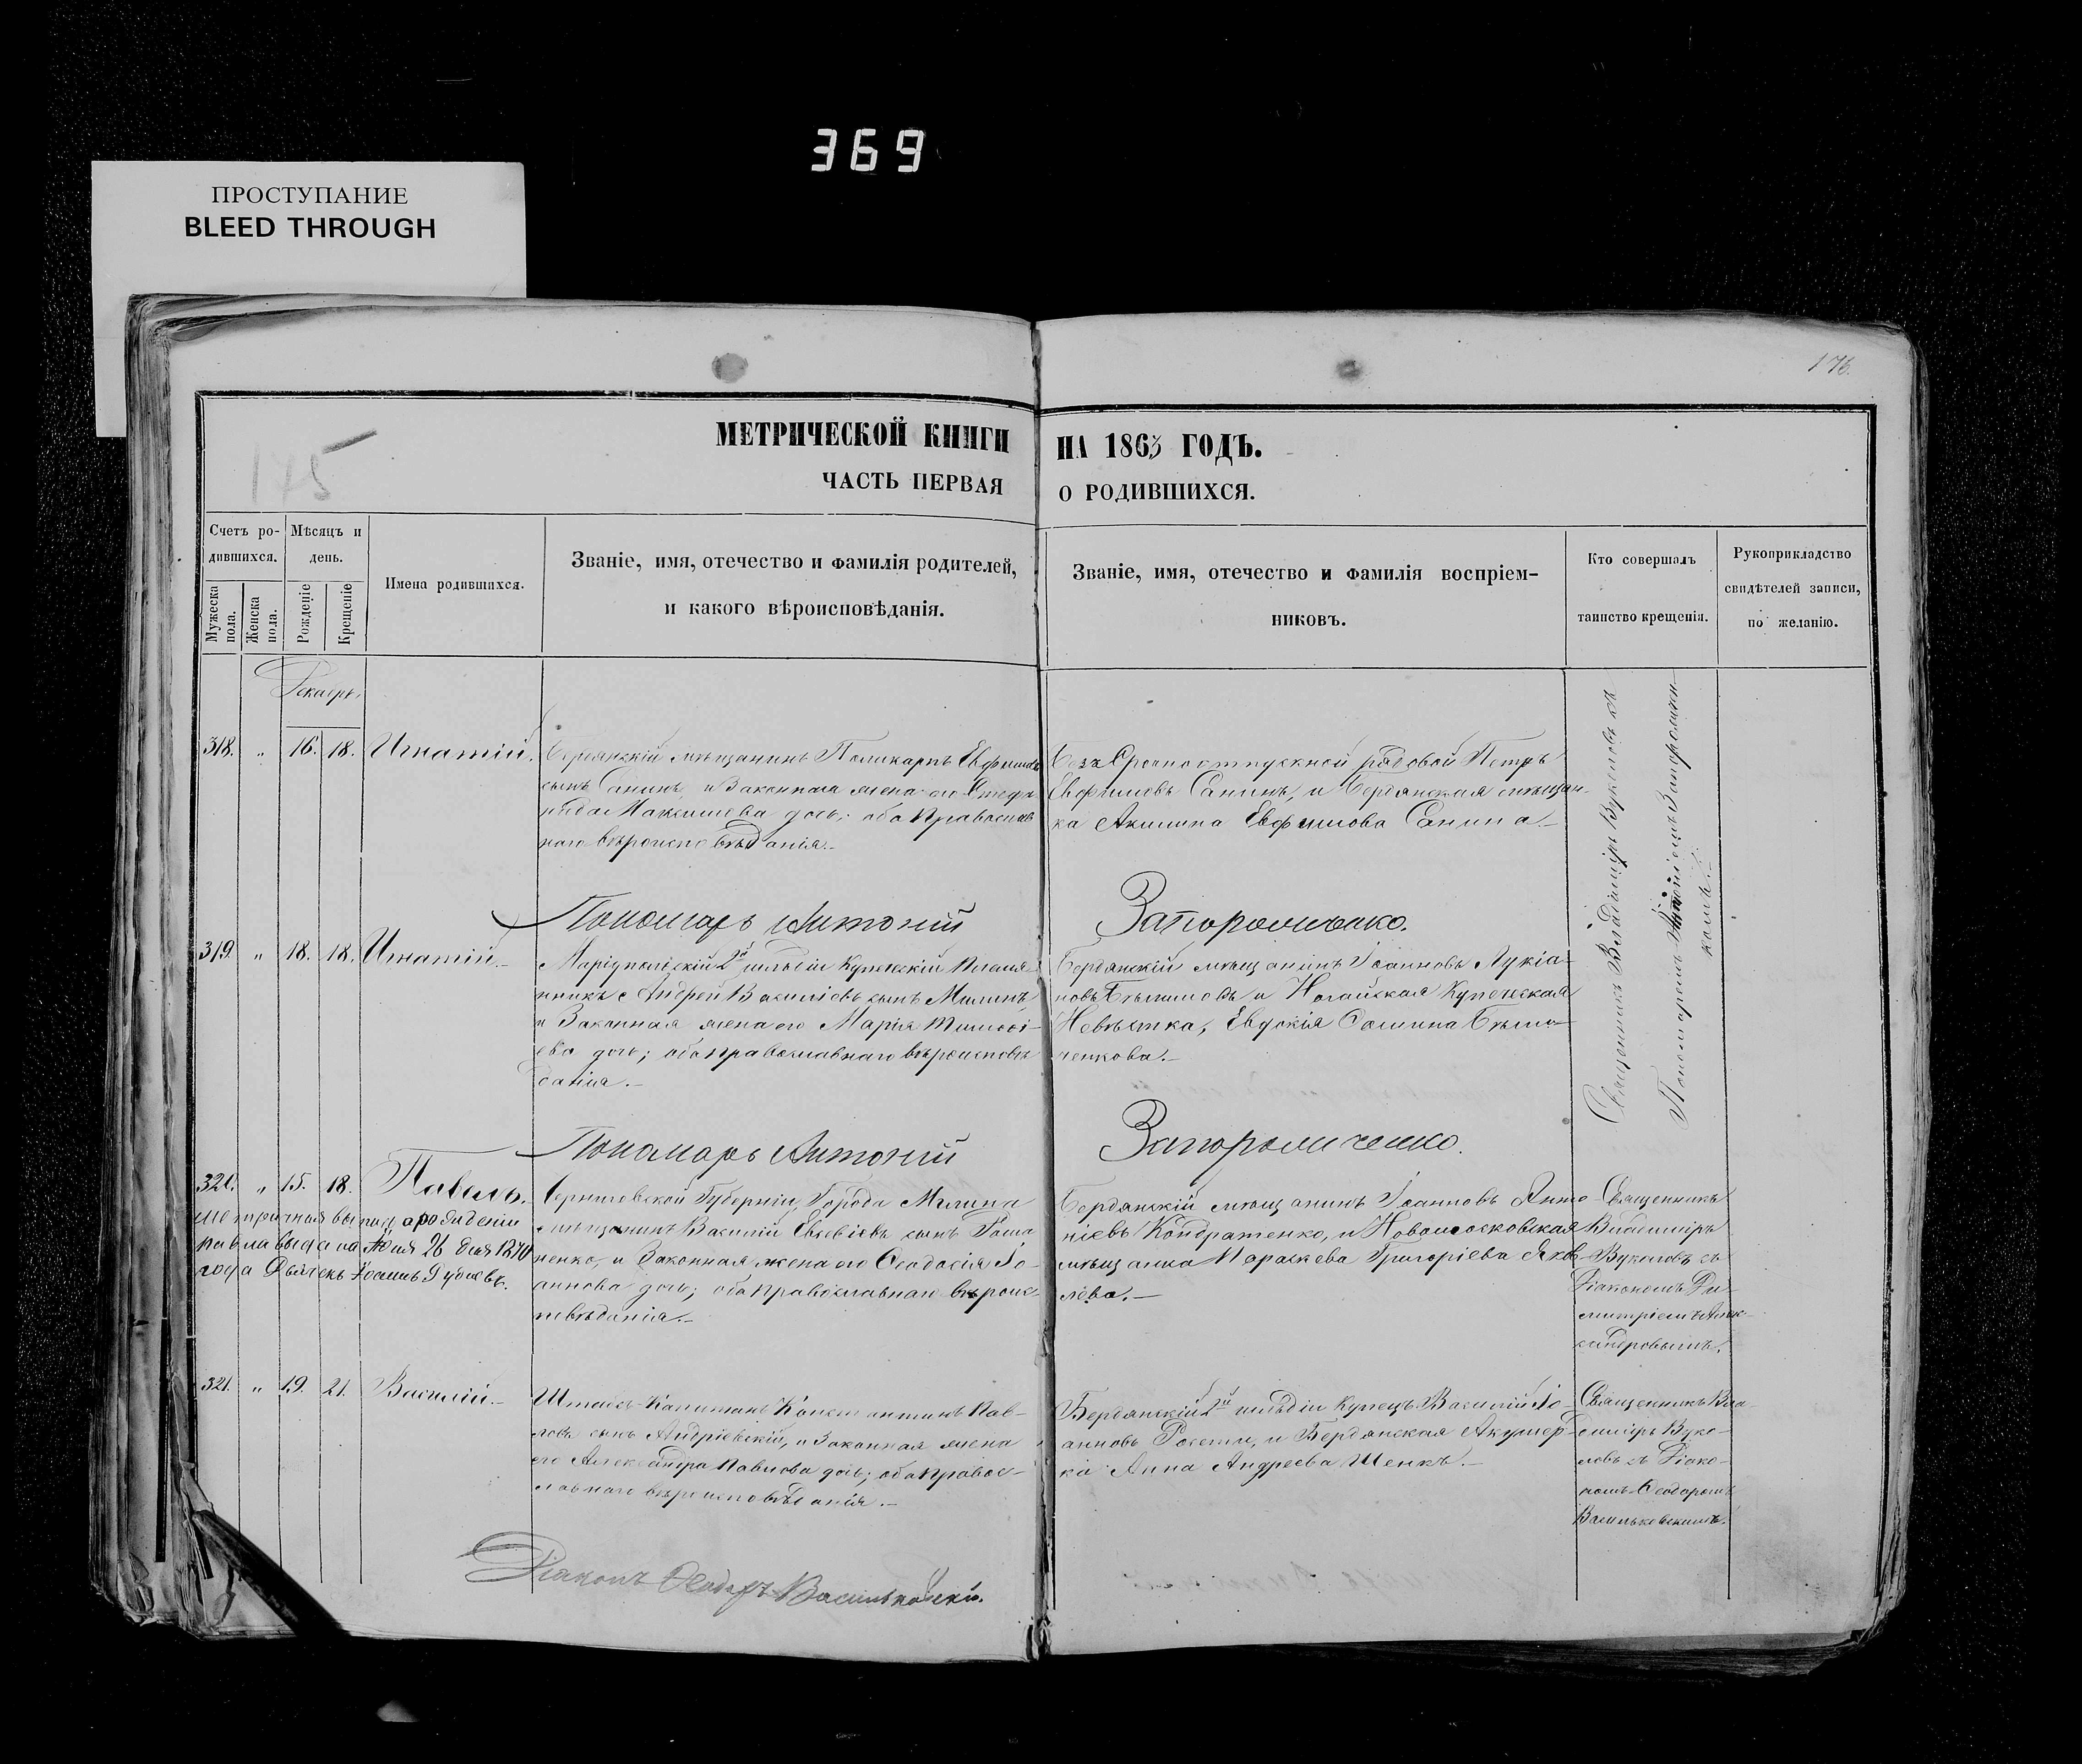 369
ПРОСТУПАНИЕ
BLEED THROUGH
176.
175
МЕТРИЧЕСКОЙ КНИГИ НА 1863 ГОДЪ.
ЧАСТЬ ПЕРВАЯ О РОДИВШИХСЯ.
Счетъ родившихся.
Мужеска пола.
Женска пола.
Мѣсяцъ и день.
Рожденіе
Крещеніе
Имена родившихся.
Званіе, имя, отечество и фамилія родителей,
и какого вѣроисповѣданія.
Званіе, имя, отечество и фамилія воспріем-
никовъ.
Кто совершалъ
таинство крещенія.
Рукоприкладство
свидѣтелей записи,
по желанію.
Декабрь
318. „ 16. 18. Игнатій.
Бердянскій мѣщанинъ Поликарпъ Евфимовъ
сынъ Санинъ, и Законная жена его Степа
нида Максимова дочь; оба Православ
наго вѣроисповѣданія.
Безсрочноотпускной рядовой Петръ
Евфимовъ Санинъ, и Бердянская мѣщан-
ка Акилина Евфимова Санина.
Пономарь Антоній Запорожченко.
Священникъ Владиміръ Вуколовъ съ
Пономаремъ Антоніемъ Запорожчен-
комъ.
319. „ 18. 18. Игнатій.
Маріупольскій 2й гильдіи Купеческій племя
нникъ Андрей Васильевъ сынъ Милинъ,
и Законная жена его Марія Тимоѳі-
ева дочь; оба православнаго вѣроисповѣ
данія.
Бердянскій мѣщанинъ Іоанновъ Лукіа-
новъ и Ногайская Купеческая
Невѣстка, Евдокія Ѳомина Бѣло-
ченкова.
Пономарь Антоній Запорожченко.
320. „ 15. 18. Павелъ.
метричная выпись о рожденіи
Павла выдана Юля 26 дня 1870
года
Черниговской Губерніи, Города Мглина
мѣщанинъ Василій Евсевіевъ сынъ Рома
ненко, и Законная жена его Ѳеодосія Іо-
аннова дочь; оба православнаго вѣроис-
повѣданія.
Бердянскій мѣщанинъ Іоанновъ Анто-
ніевъ Кондратенко, и Новомосковская
мѣщанка Параскева Григоріева Яков-
лева.
Священникъ
Владиміръ
Вуколовъ съ
Діакономъ Ди-
митріемъ Алек-
сандровымъ.
321. „ 19. 21. Василій.
Штабсъ-Капитанъ Константинъ Пав-
ловъ сынъ Андріевскій, и Законная жена
его Александра Павлова дочь; оба Правос-
лавнаго вѣроисповѣданія.
Бердянскій 2й гильдіи Купецъ Василій Іо-
анновъ Росети, и Бердянская Акушер-
ка Анна Андреева Шенкъ.
Священникъ Вла-
диміръ Вуко-
ловъ съ Діако-
номъ Ѳеодоромъ
Васильковскимъ.
Діаконъ Ѳеодоръ Васильковскій.